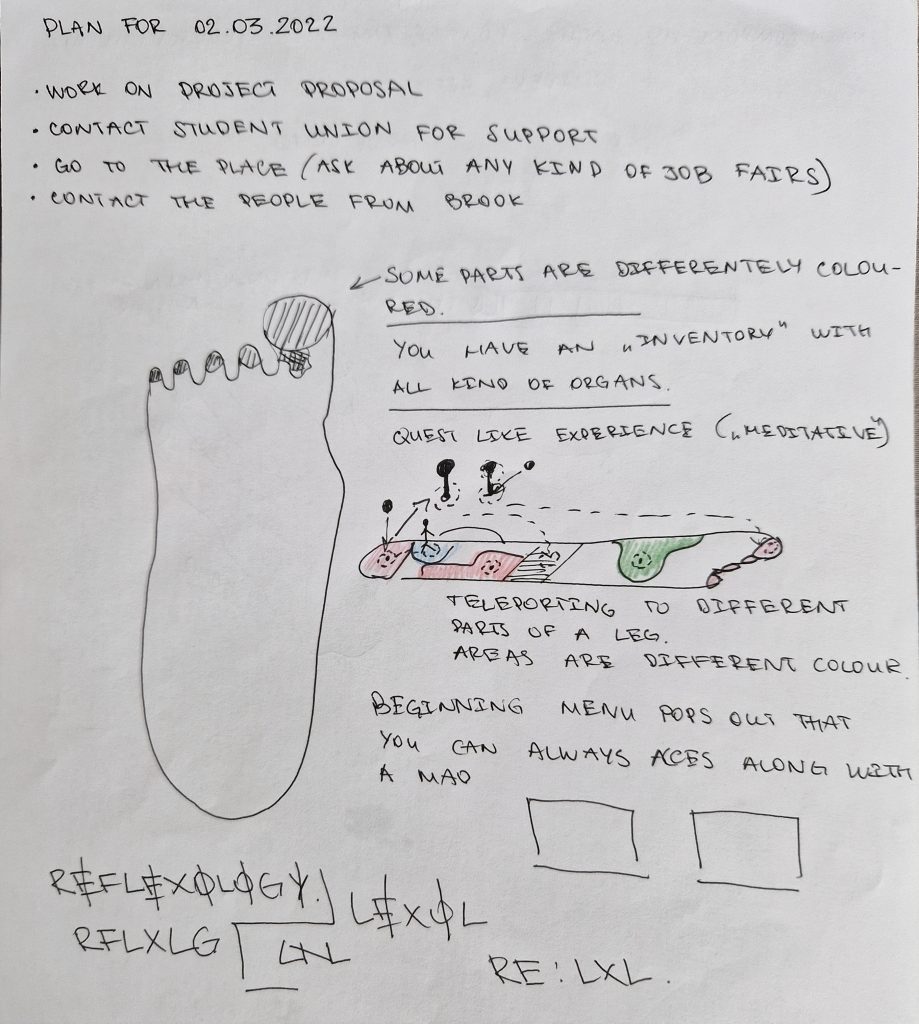 PLAN FOR 02.03.2022
• WORK ON PROJECT PROPOSAL
• CONTACT STUDENT UNION FOR SUPPORT
• GO TO THE PLACE (ASK ABOUT ANY KIND OF JOB FAIRS)
• CONTACT THE PEOPLE FROM BROOK
SOME PARTS ARE DIFFERENTELY COLOU-
RED.
YOU HAVE AN „INVENTORY" WITH
ALL KIND OF ORGANS.
QUEST LIKE EXPERIENCE („MEDITATIVE")
TELEPORTING TO DIFFERENT
PARTS OF A LEG.
AREAS ARE DIFFERENT COLOUR.
BEGINNING MENU POPS OUT THAT
YOU CAN ALWAYS ACES ALONG WITH
A MAP
REFLEXOLOGY.
RFLXLG
LEXOL
RE:LXL.